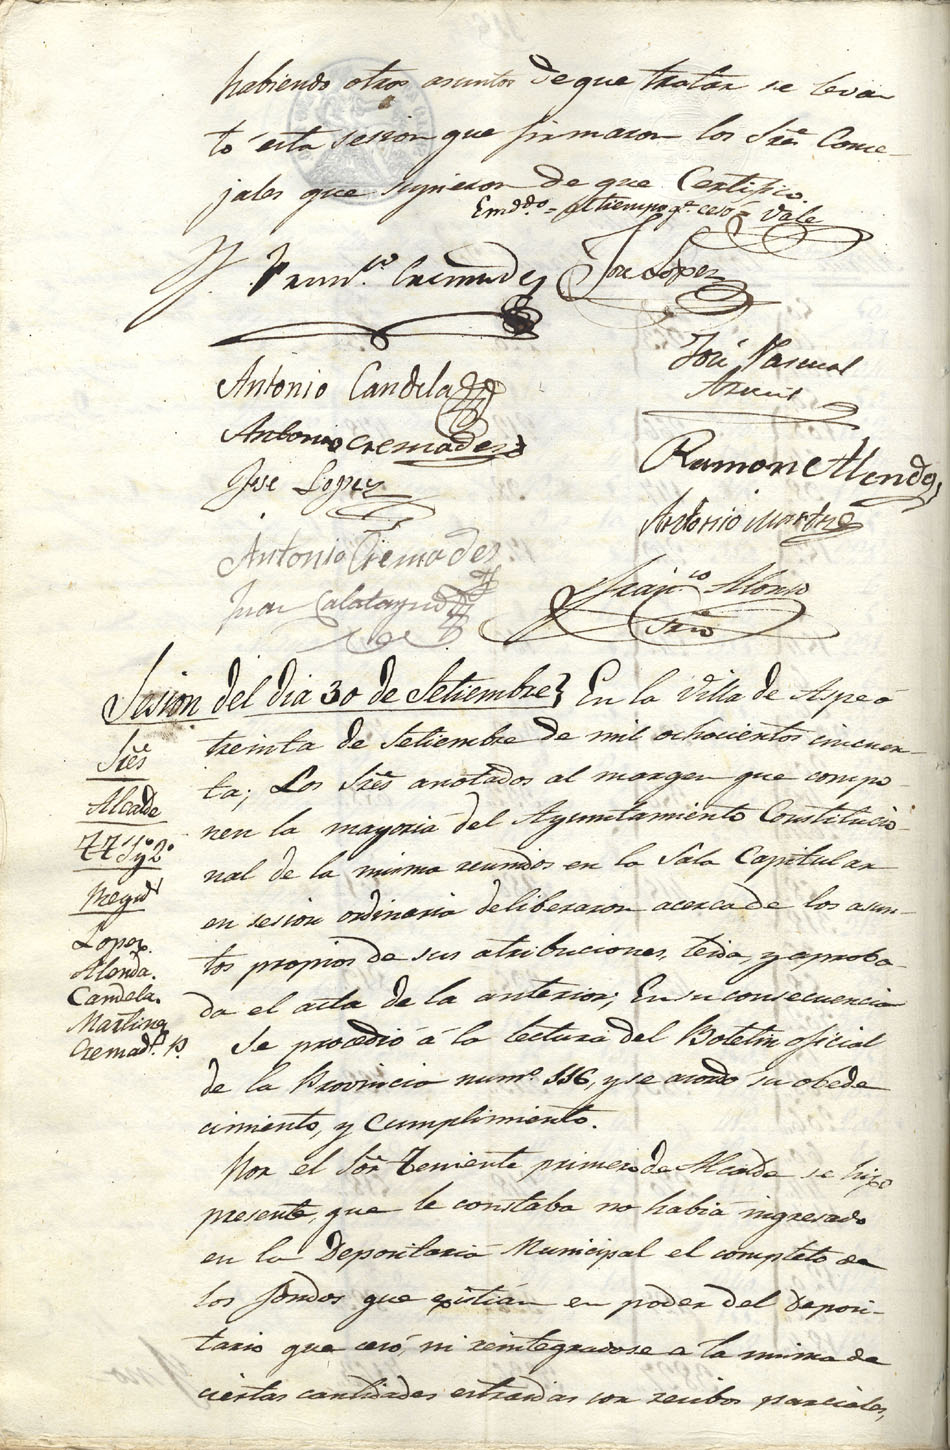 habiendo otros asuntos de que tratar se levan
tó esta sesion que firmaron los Sres. Conce-
jales que supieron de que Certifico.
Emddo. = al tiempo q.e cesó = Vale
Fran.co Cremades
José López
Antonio Candela
José Pascual
Antonio Cremades
Ramon Alenda
José Lopez
Antonio Martinez
Antonio Cremades
Juan Calatayud
Fran.co Alonso
Srio
Sesion del dia 30 de Setiembre} En la Villa de Aspe á
treinta de Setiembre de mil ochocientos cincuen-
ta; Los Sres. anotados al margen que compo-
nen la mayoria del Ayuntamiento Constitucio-
nal de la misma reunidos en la Sala Capitular
en sesion ordinaria deliberaron acerca de los asun-
tos propios de sus atribuciones, leida, y aproba-
da el acta de la anterior; En su consecuencia
Se procedió á la lectura del Boletin oficial
de la Provincia num.o 116, y se acordó su obede
cimiento, y cumplimiento.
Por el Sor. Teniente primero de Alcalde se hizo
presente, que le constaba no habia ingresado
en la Depositaria Municipal el completo de
los fondos que existian en poder del Deposi-
tario que cesó, ni reintegradose a la misma de
ciertas cantidades estraidas con recibos parciales,
Sres
Alcalde
TT 1o y 2o
Regid.s
Lopez.
Alenda.
Candela.
Martinez
Cremad.s P.